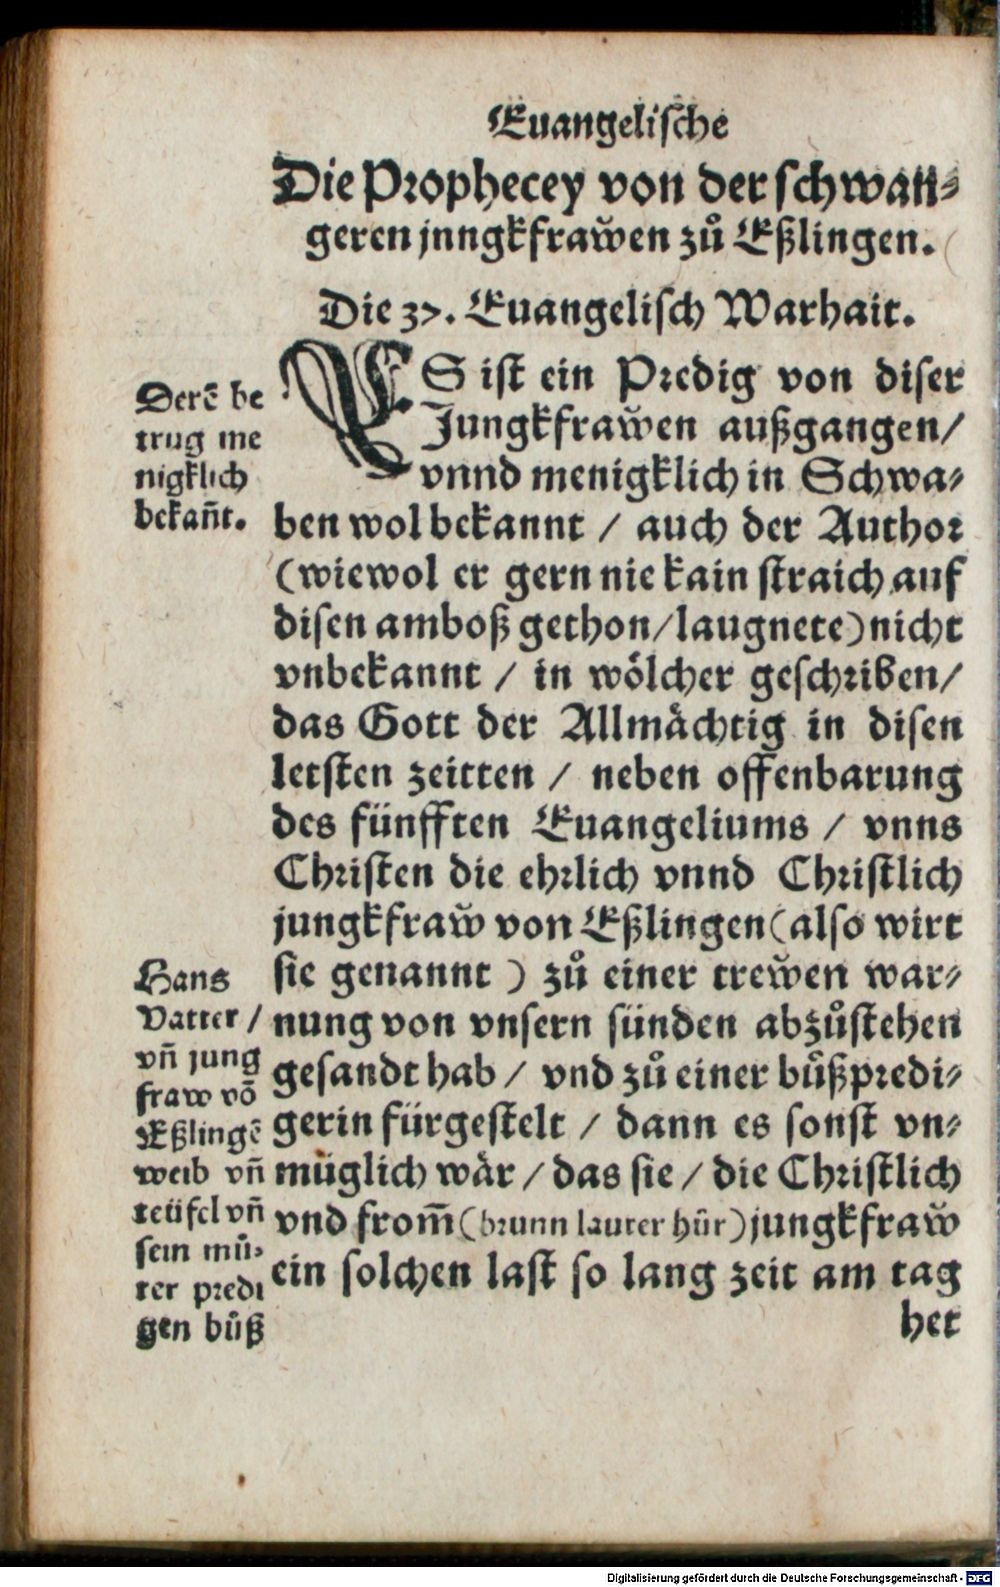 Euangelische
Die Prophecey von der schwan⸗
geren jnngkfraw̆en zů Eßlingen.
Die 37. Euangelisch Warhait.
ES ist ein Predig von diser
Jungkfraw̆en außgangen/
vnnd menigklich in Schwa⸗
ben wol bekannt / auch der Author
(wiewol er gern nie kain straich auf
disen amboß gethon/laugnete) nicht
vnbekannt / in wölcher geschriben/
das Gott der Allmächtig in disen
letsten zeitten / neben offenbarung
des fünfften Euangeliums / vnns
Christen die ehrlich vnnd Christlich
jungkfraw̆ von Eßlingen (also wirt
sie genannt ) zů einer trew̆en war⸗
nung von vnsern sünden abzůstehen
gesandt hab / vnd zů einer bůßpredi⸗
gerin fürgestelt / dann es sonst vn⸗
müglich wär / das sie / die Christlich
vnd from̄ (brunn lauter hůr) jungkfraw̆
ein solchen last so lang zeit am tag
het
Derē be
trug me
nigklich
bekan̄t.
Hans
Vatter /
vn̄ jung
fraw vō
Eßlingē
weib vn̄
teüfel vn̄
sein mů⸗
ter predi
gen bůß
Digitalisierung gefördert durch die Deutsche Forschungsgemeinschaft - DFG